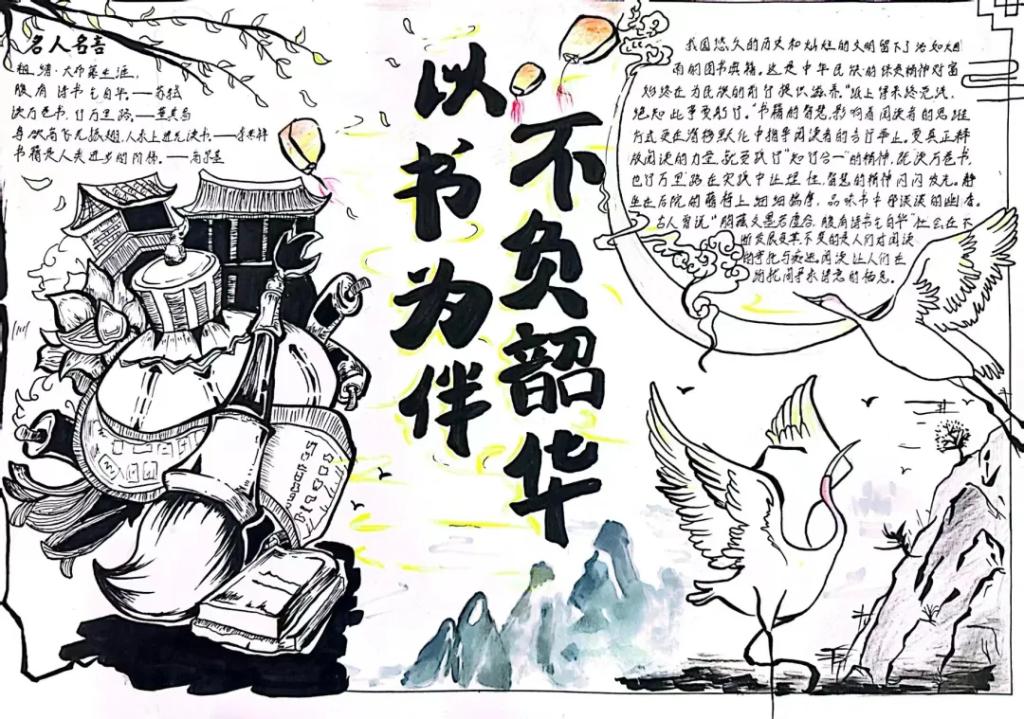 名人名言
粗缯大布裹生涯,
腹有诗书气自华。——苏轼
读万卷书,行万里路。——董其昌
鸟欲高飞先振翅,人求上进先读书。——李苦禅
书籍是人类进步的阶梯。——高尔基
以书为伴
不负韶华
我国悠久的历史和灿烂的文明留下了浩如烟
海的图书典籍。这是中华民族的绵延精神财富
始终在为民族的前行提供滋养。"纸上得来终觉浅,
绝知此事要躬行。"书籍的智慧,影响着阅读者的思维
方式更在潜移默化中指导阅读者的言行举止。要真正释
放阅读的力量,就要践行"知行合一"的精神,既读万卷书,
也行万里路在实践中让理性,智慧的精神闪闪发光。静
坐在后院的 上细细揣摩,品味书中那淡淡的幽香。
古人曾说"胸藏文墨若虚谷,腹有诗书气自华"社会在不
断发展变其不变的是人们对阅读
的 阅读让人们在
的栖息。